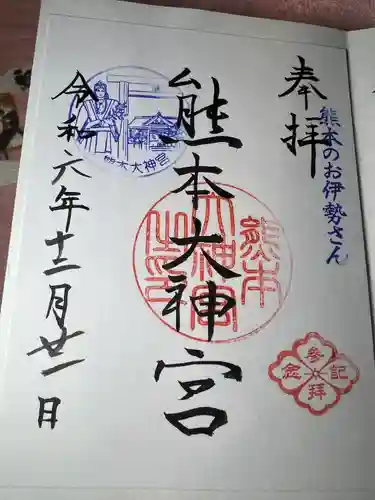 奉拝
熊本のお伊勢さん
熊本大神宮
令和六年十二月廿一日
熊本大神宮
参拝記念